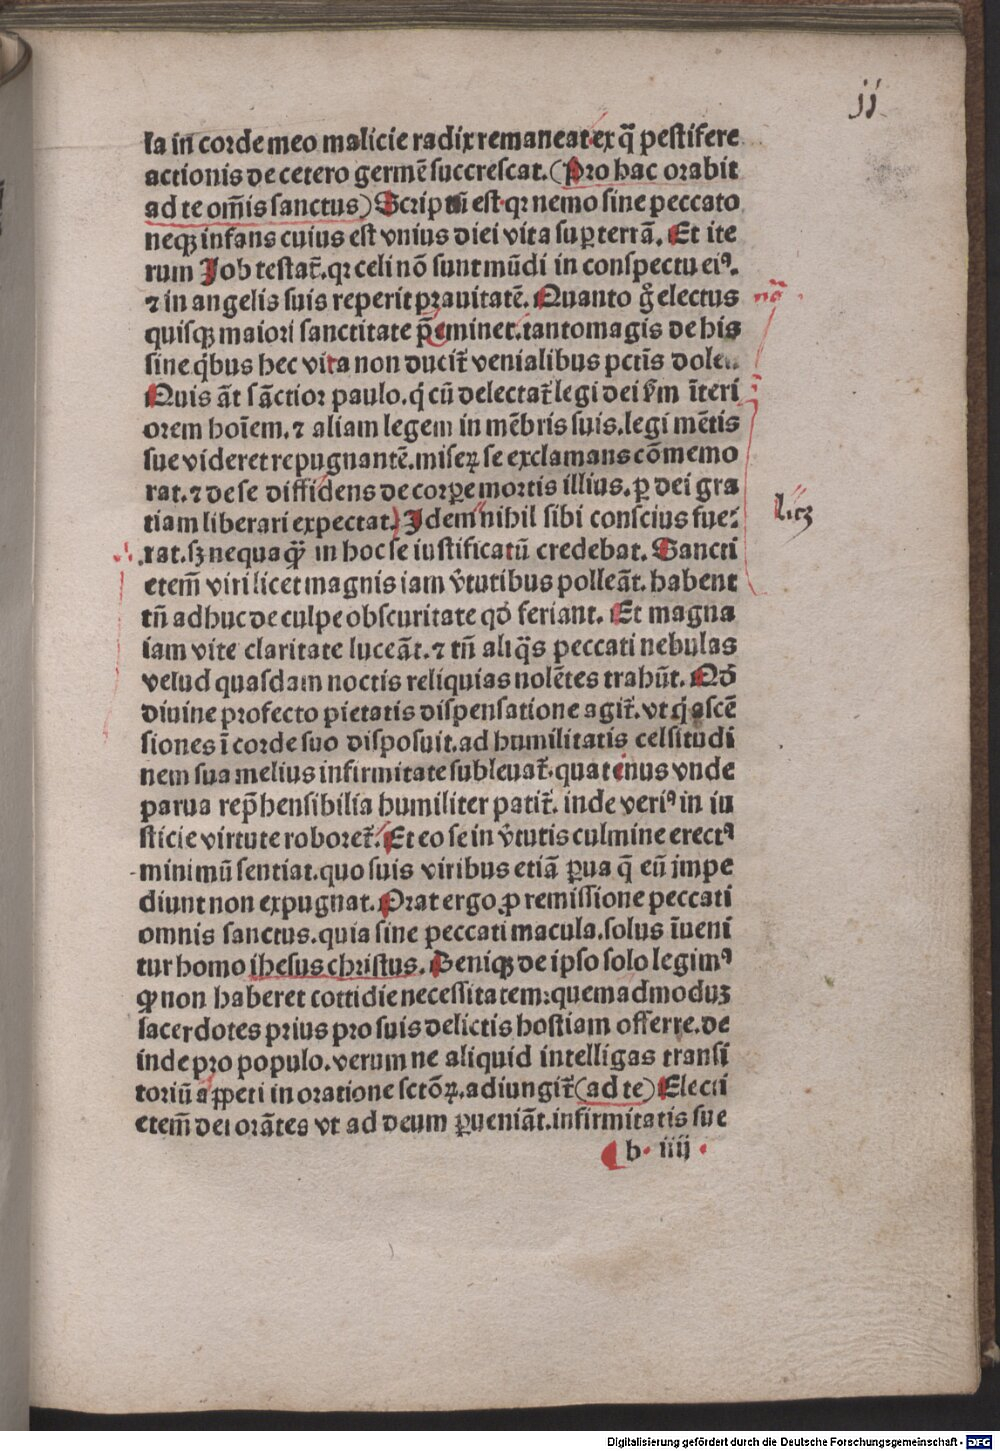 ij
la in corde meo malicie radix remaneat ex q̄ pestifere
actionis de cetero germē succrescat. (Pro hac orabit
ad te om̄is sanctus) Scriptū est qꝛ nemo sine peccato
neqꝫ infans cuius est vnius diei vita suꝑ terrā. Et ite
rum Job testat̄. qꝛ celi nō sunt mūdi in conspectu eiꝰ.
⁊ in angelis suis reperit prauitatē. Quanto gͦ electus
quisqꝫ maiori sanctitate p̄eminet. tantomagis de his
sine qͥbus hec vita non ducit̄ venialibus pctīs dole
Quis āt sāctior paulo. qͥ cū delectat̄ legi dei ẜm īteri
orem hoīem. ⁊ aliam legem in mēbris suis. legi mētis
sue videret repugnantē. miseꝝ se exclamans cōmemo
rat. ⁊ de se diffidens de corꝑe mortis illius. ꝑ dei gra
tiam liberari expectat. Idem nihil sibi conscius fue⸗
rat. sꝫ nequaqᷓꝫ in hoc se iustificatū credebat. Sancti
etem̄ viri licet magnis iam v̄tutibus polleāt. habent
tn̄ adhuc de culpe obscuritate qd̓ feriant. Et magna
iam vite claritate luceāt. ⁊ tn̄ aliqͣs peccati nebulas
velud quasdam noctis reliquias nolētes trahūt. Qd̓
diuine profecto pietatis dispensatione agit̄. vt qͥ ascē
siones ī corde suo disposuit. ad humilitatis celsitudi
nem sua melius infirmitate subleuat̄. quatenus vnde
parua rep̄hensibilia humiliter patit̄. inde veriꝰ in iu
sticie virtute roboret̄. Et eo se in v̄tutis culmine erectꝰ
minimū sentiat. quo suis viribus etiā ꝑua q̄ eū impe
diunt non expugnat. Orat ergo ꝓ remissione peccati
omnis sanctus. quia sine peccati macula. solus īueni
tur homo ihesus christus. Deniqꝫ de ipso solo legimꝰ
ꝙ non haberet cottidie necessitatem: quemadmoduꝫ
sacerdotes prius pro suis delictis hostiam offerre. de
inde pro populo. verum ne aliquid intelligas transi
toriū aꝑpeti in oratione sctōꝝ. adiungit̄ (ad te) Electi
etem̄ dei orātes vt ad deum ꝑueniāt. infirmitatis sue
b iiij
nō
licꝫ
Digitalisierung gefördert durch die Deutsche Forschungsgemeinschaft - DFG